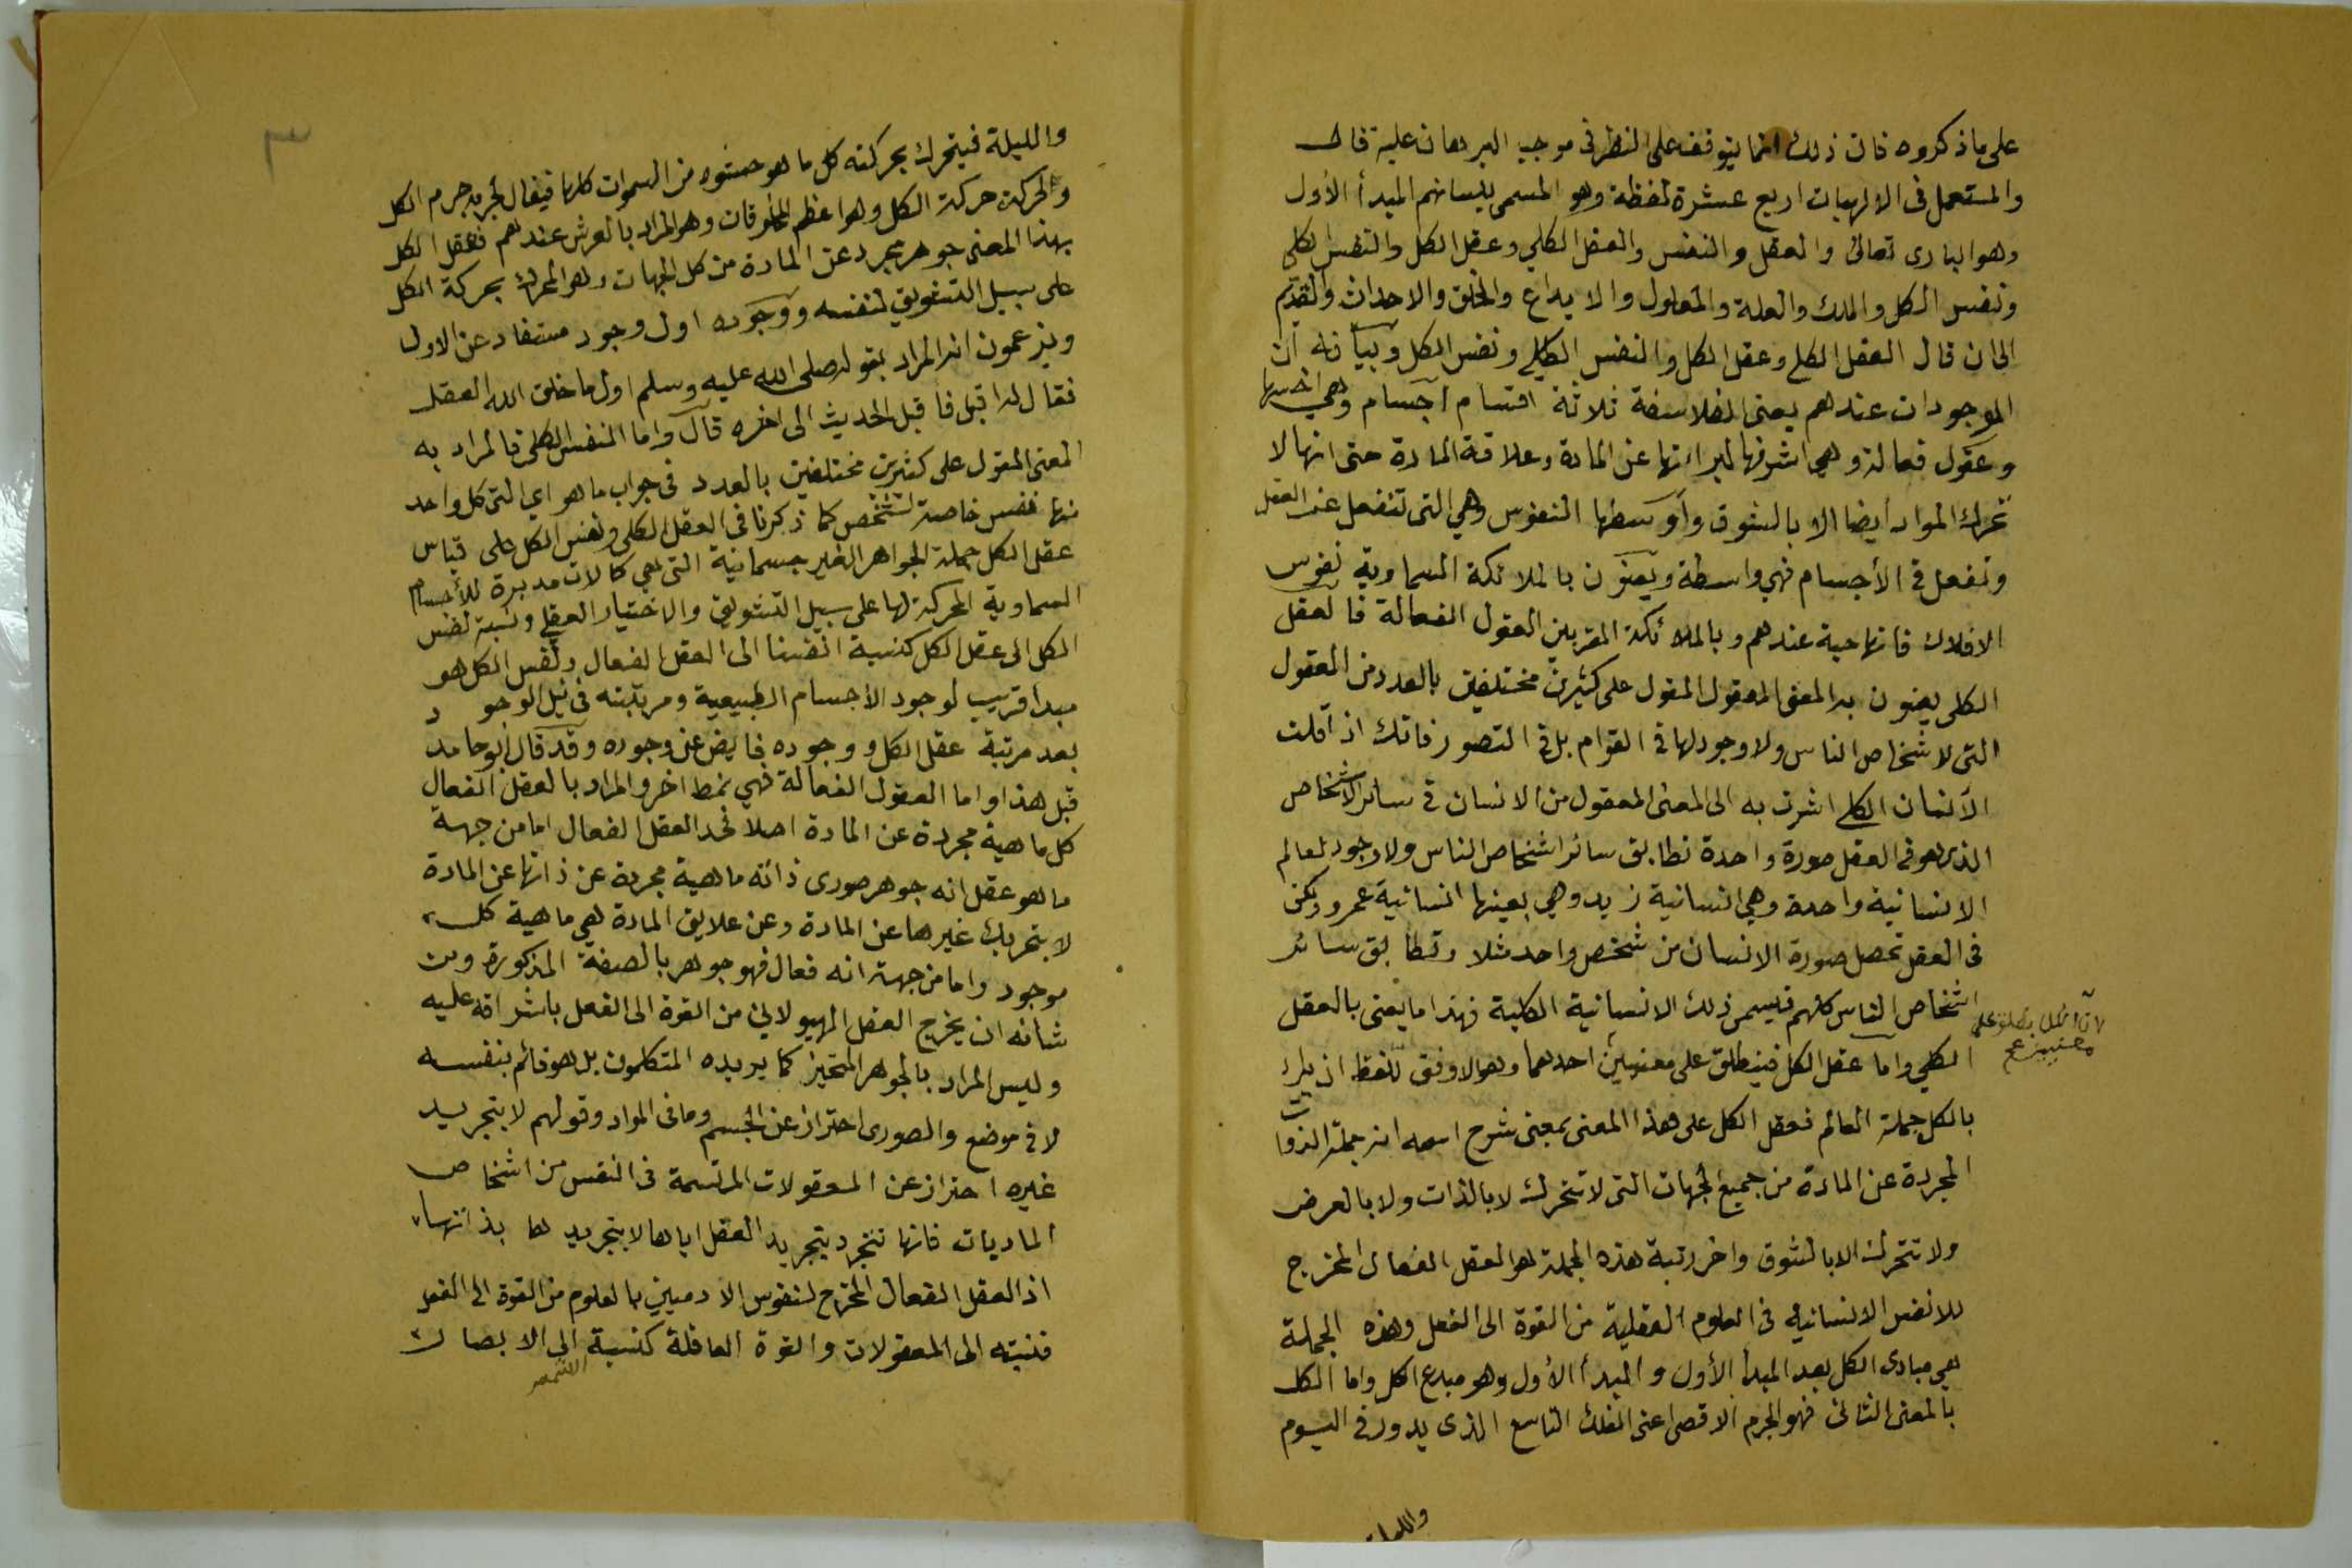 على ما ذكروه فان ذلك انما يتوقف على النظر في موجب البرهان عليه قال
والمستعمل في الالهيات اربع عشرة لفظة وهو المسمى بلسانهم المبدأ الأول
وهو البارى تعالى والعقل والنفس والعقل الكلي وعقل الكل والنفس الكلى
ونفس الكل والملك والعلة والمعلول والابداع والخلق والاحداث والقديم
الى ان قال العقل الكلى وعقل الكل والنفس الكلى ونفس الكل وبيانه أن
الموجودات عندهم يعنى الفلاسفة ثلاثة اقسام اجسام وهي اخسها
وعقول فعالة وهي اشرفها لبرائتها عن المادة وعلاقة المادة حتى انها لا
تحرك المواد أيضا الا بالشوق وأوسطها النفوس وهي التى تنفعل عن العقل
وتفعل في الأجسام فهي واسطة ويعنون بالملائكة السماوية نفوس
الافلاك فانها حية عندهم وبالملائكة المقربين العقول الفعالة فالعقل
الكلى يعنون به المعنى المعقول المقول على كثيرين مختلفين بالعدد من العقول
التى لاشخاص الناس ولا وجود لها في القوام بل في التصور فانك اذا قلت
الانسان الكلي اشرت به الى المعنى المعقول من الانسان في سائر الاشخاص
الذى هو في العقل صورة واحدة تطابق سائر اشخاص الناس ولا وجود لعالم
الانسانية واحدة وهي انسانية زيد وهي بعينها انسانية عمرو ولكن
في العقل تحصل صورة الانسان من شخص واحد مثلا وتطابق سائر
اشخاص الناس كلهم فيسمى ذلك الانسانية الكلية فهذا ما يعنى بالعقل
لان الكل يطلق على
معنيين صح
الكلي واما عقل الكل فينطلق على معنيين احدهما وهو الاوفق للفظ ان يراد
بالكل جملة العالم فعقل الكل على هذا المعنى بمعنى شرح اسمه انه جملة الذوات
المجردة عن المادة من جميع الجهات التى لا تتحرك لا بالذات ولا بالعرض
ولا تتحرك الا بالشوق واخر رتبة هذه الجملة هو العقل الفعال المخرج
للانفس الانسانية في العلوم العقلية من القوة الى الفعل وهذه الجملة
هي مبادى الكل بعد المبدأ الأول والمبدأ الأول وهو مبدع الكل واما الكل
بالمعنى الثانى فهو الجرم الاقصى اعنى الفلك التاسع الذى يدور في اليوم
والليلة
٣
والليلة فيتحرك بحركته كل ما هو حشوه من السموات كلها فيقال لجرمه جرم الكل
والحركته حركة الكل وهو اعظم المخلوقات وهو المراد بالعرش عندهم فعقل الكل
بهذا المعنى جوهر مجرد عن المادة من كل الجهات وهو المحرك بحركة الكل
على سبيل التشويق لنفسه ووجوده اول وجود مستفاد عن الاول
ويزعمون انه المراد بقوله صلى الله عليه وسلم اول ما خلق الله العقل
فقال له اقبل فاقبل الحديث الى اخره قال واما النفس الكلى فالمراد به
المعنى المقول على كثيرين مختلفين بالعدد في جواب ما هو اي التى كل واحد
منها نفس خاصة لشخص كما ذكرنا في العقل الكلى ونفس الكل على قياس
عقل الكل جملة الجواهر الغير جسمانية التى هي كمالات مدبرة للأجسام
السماوية المحركة لها على سبيل التشويق والاختيار العقلي ونسبة نفس
الكل الى عقل الكل كنسبة انفسنا الى العقل الفعال ونفس الكل هو
مبدا قريب لوجود الأجسام الطبيعية ومرتبته في نيل الوجود
بعد مرتبة عقل الكل ووجوده فايض عن وجوده وقد قال ابو حامد
قبل هذا واما العقول الفعالة فهي نمط اخر والمراد بالعقل الفعال
كل ماهية مجردة عن المادة اصلا فحد العقل الفعال اما من جهة
ما هو عقل انه جوهر صورى ذاته ماهية مجردة عن ذاتها عن المادة
لا بتجريك غيرها عن المادة وعن علايق المادة هي ماهية كل
موجود واما من جهة انه فعال فهو جوهر بالصفة المذكورة ومن
شانه ان يخرج العقل الهيولانى من القوة الى الفعل باشراقه عليه
وليس المراد بالجوهر المتحيز كما يريده المتكلمون بل هو قائم بنفسه
لا في موضع والصورى احتراز عن الجسم وما في المواد وقولهم لا بتجريد
غيره احتراز عن المعقولات المرتسمة في النفس من اشخاص
الماديات فانها تتجرد بتجريد العقل اياها لا بتجريدها بذاتها
اذ العقل الفعال المخرج لنفوس الادميين بالعلوم من القوة الى الفعل
فنسبته الى المعقولات والقوة العاقلة كنسبة الى الابصار
الشمس